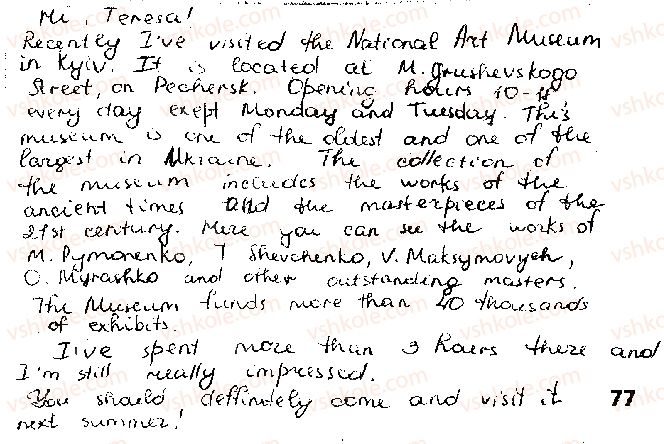 Hi, Teresa!
Recently I've visited the National Art Museum
in Kyiv. It is located at M. Grushevskogo
Street, on Pechersk. Opening hours 10-
every day exept Monday and Tuesday. This
museum is one of the oldest and one of the
largest in Ukraine. The collection of
the museum includes the works of the
ancient times and the masterpieces of the
21st century. Here you can see the works of
M. Pymonenko, T Shevchenko, V. Maksymovych,
O. Myrashko and other outstanding masters.
The Museum funds more than 40 thousands
of exhibits.
I've spent more than 3 hours there and
I'm still really impressed.
You should deffinetely come and visit it 77
next summer!